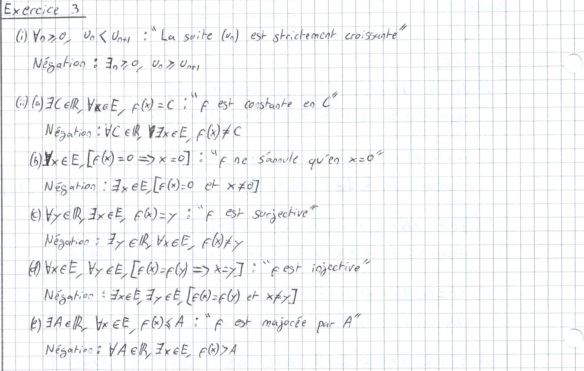 Exercice 3
(i) ∀n≥0, un < un+1 : "La suite (un) est strictement croissante"
Négation : ∃n≥0, un ≥ un+1
(ii) (a) ∃C∈ℝ, ∀x∈E, f(x)=C : "f est constante en C"
Négation : ∀C∈ℝ, ∃x∈E, f(x)≠C
(b) ∀x∈E, [f(x)=0 => x=0] : "f ne s'annule qu'en x=0"
Négation : ∃x∈E, [f(x)=0 et x≠0]
(c) ∀y∈ℝ, ∃x∈E, f(x)=y : "f est surjective"
Négation : ∃y∈ℝ, ∀x∈E, f(x)≠y
(d) ∀x∈E, ∀y∈E, [f(x)=f(y) => x=y] : "f est injective"
Négation : ∃x∈E, ∃y∈E, [f(x)=f(y) et x≠y]
(e) ∃A∈ℝ, ∀x∈E, f(x)≤A : "f est majorée par A"
Négation : ∀A∈ℝ, ∃x∈E, f(x)>A